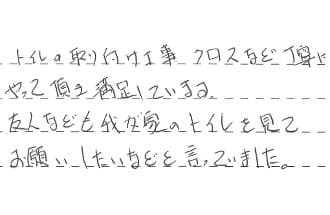 トイレの取り付け工事 クロスなど丁寧に
やって頂き満足しています。
友人なども我が家のトイレを見て
お願いしたいなどと言っていました。